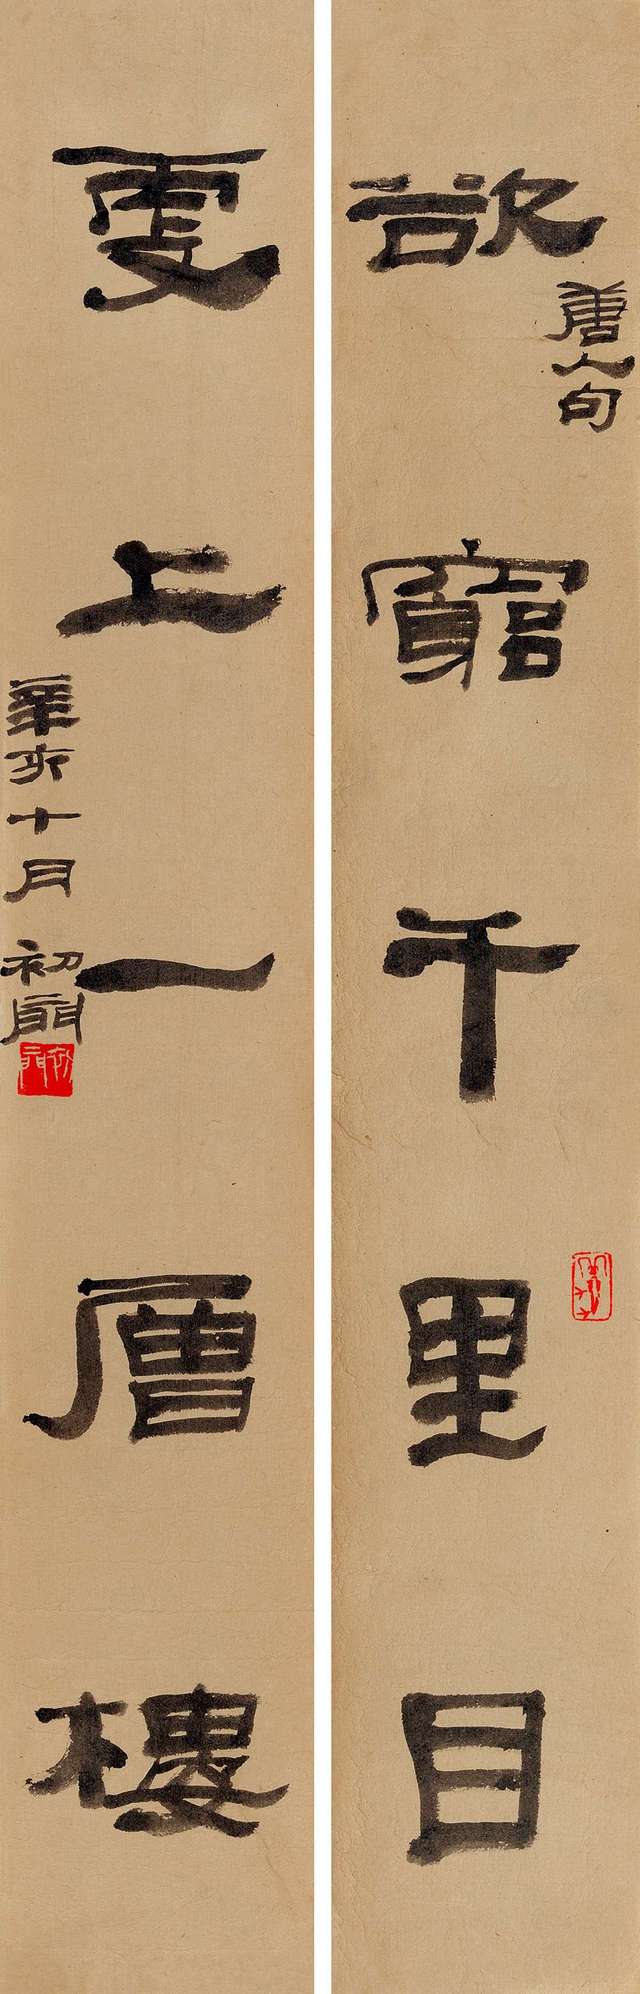 欲竆千里目
唐人句
更上一層樓
辛亥十月 初